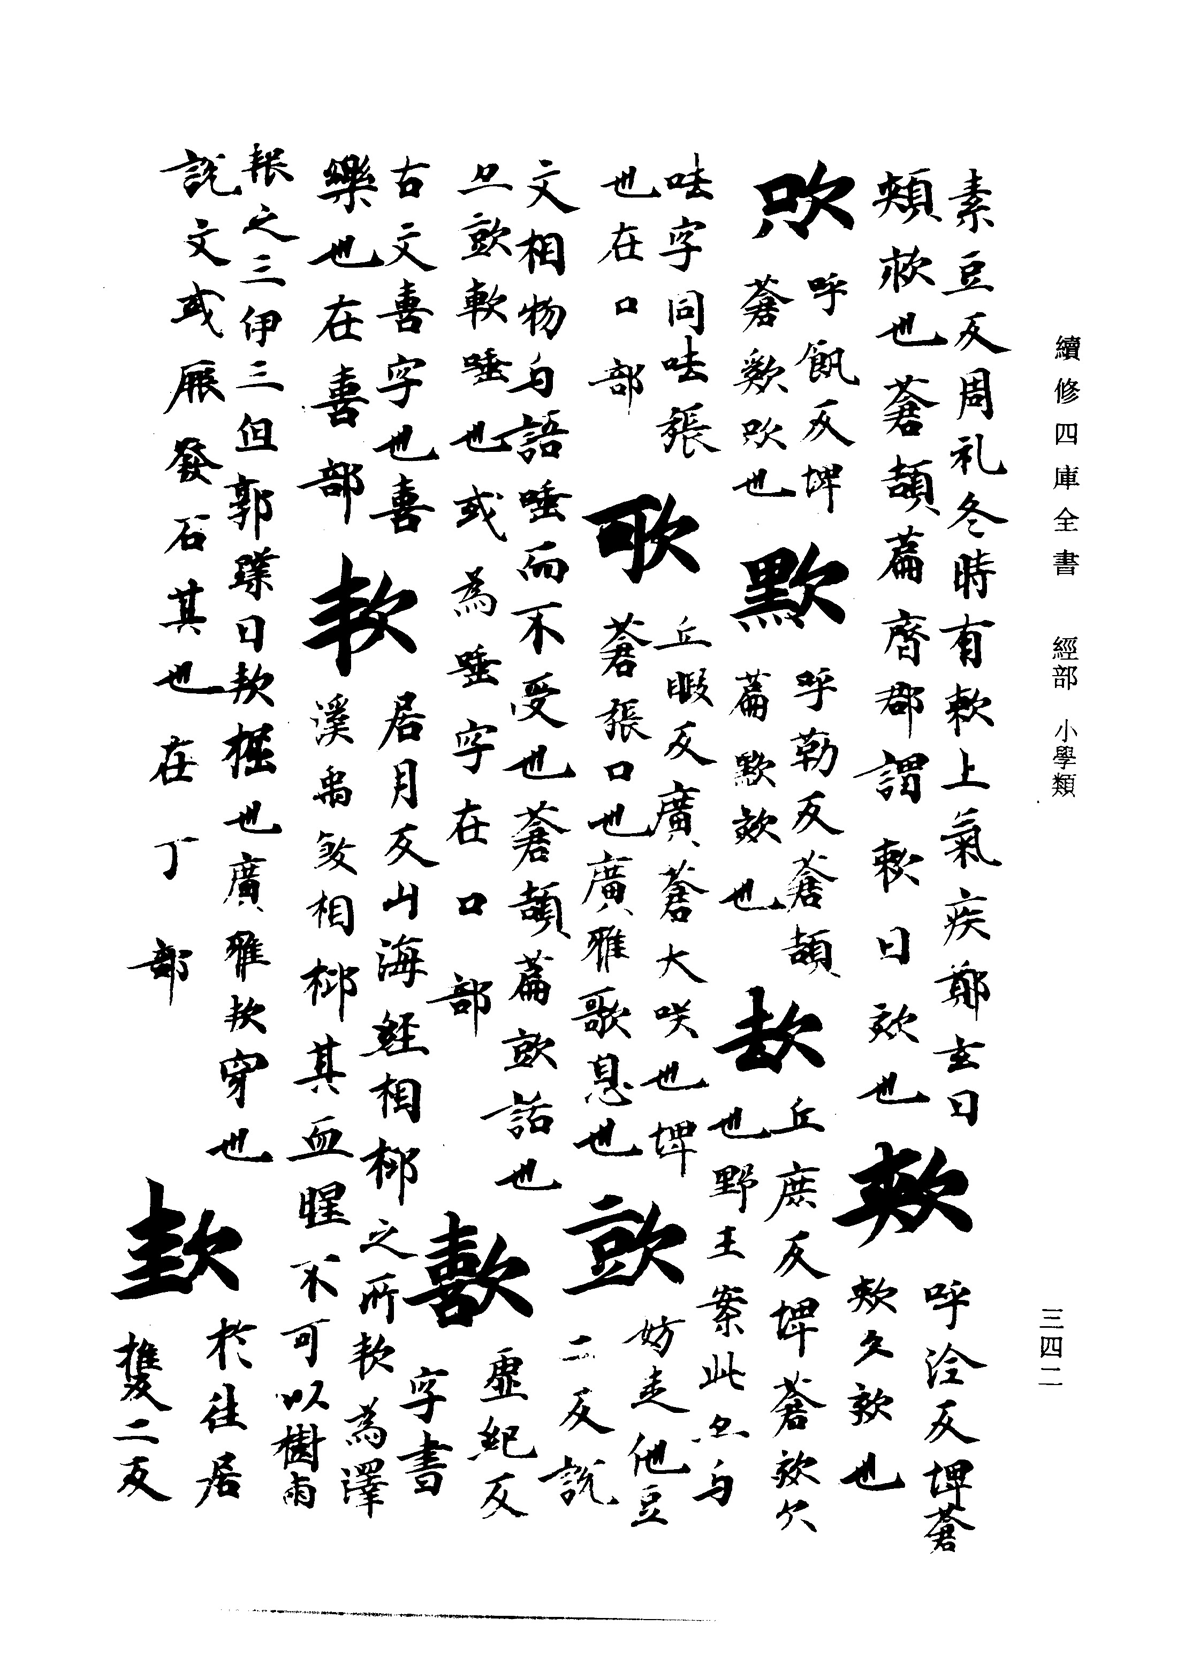 續修四庫全書 經部 小學類
三四二
素豆反周礼冬時有欶上氣疾鄭玄曰
頰欶也蒼頡篇齊郡謂欶曰欬也
㰰
呼洽反埤蒼
㰰欠欬也
呼飢反埤
蒼也
呼勒反蒼頡
篇欬也
㰦
丘庶反埤蒼欬欠
也野王案此亦与
呿字同呿張
也在口部
丘暇反廣蒼大咲也埤
蒼張口也廣雅歌息也
妨走他豆
二反說
文相物与語唾而不受也蒼頡篇詬也
亦軟唾也或為唾字在口部
歖
虛紀反
字書
古文喜字也喜
樂也在喜部
欮
居月反山海經相柳之所欮為澤
溪禹殺相柳其血腥不可以樹雨
報之三伊三但郭璞曰欮掘也廣雅欮穿也
說文或發石其也在丁部
於往居
携二反